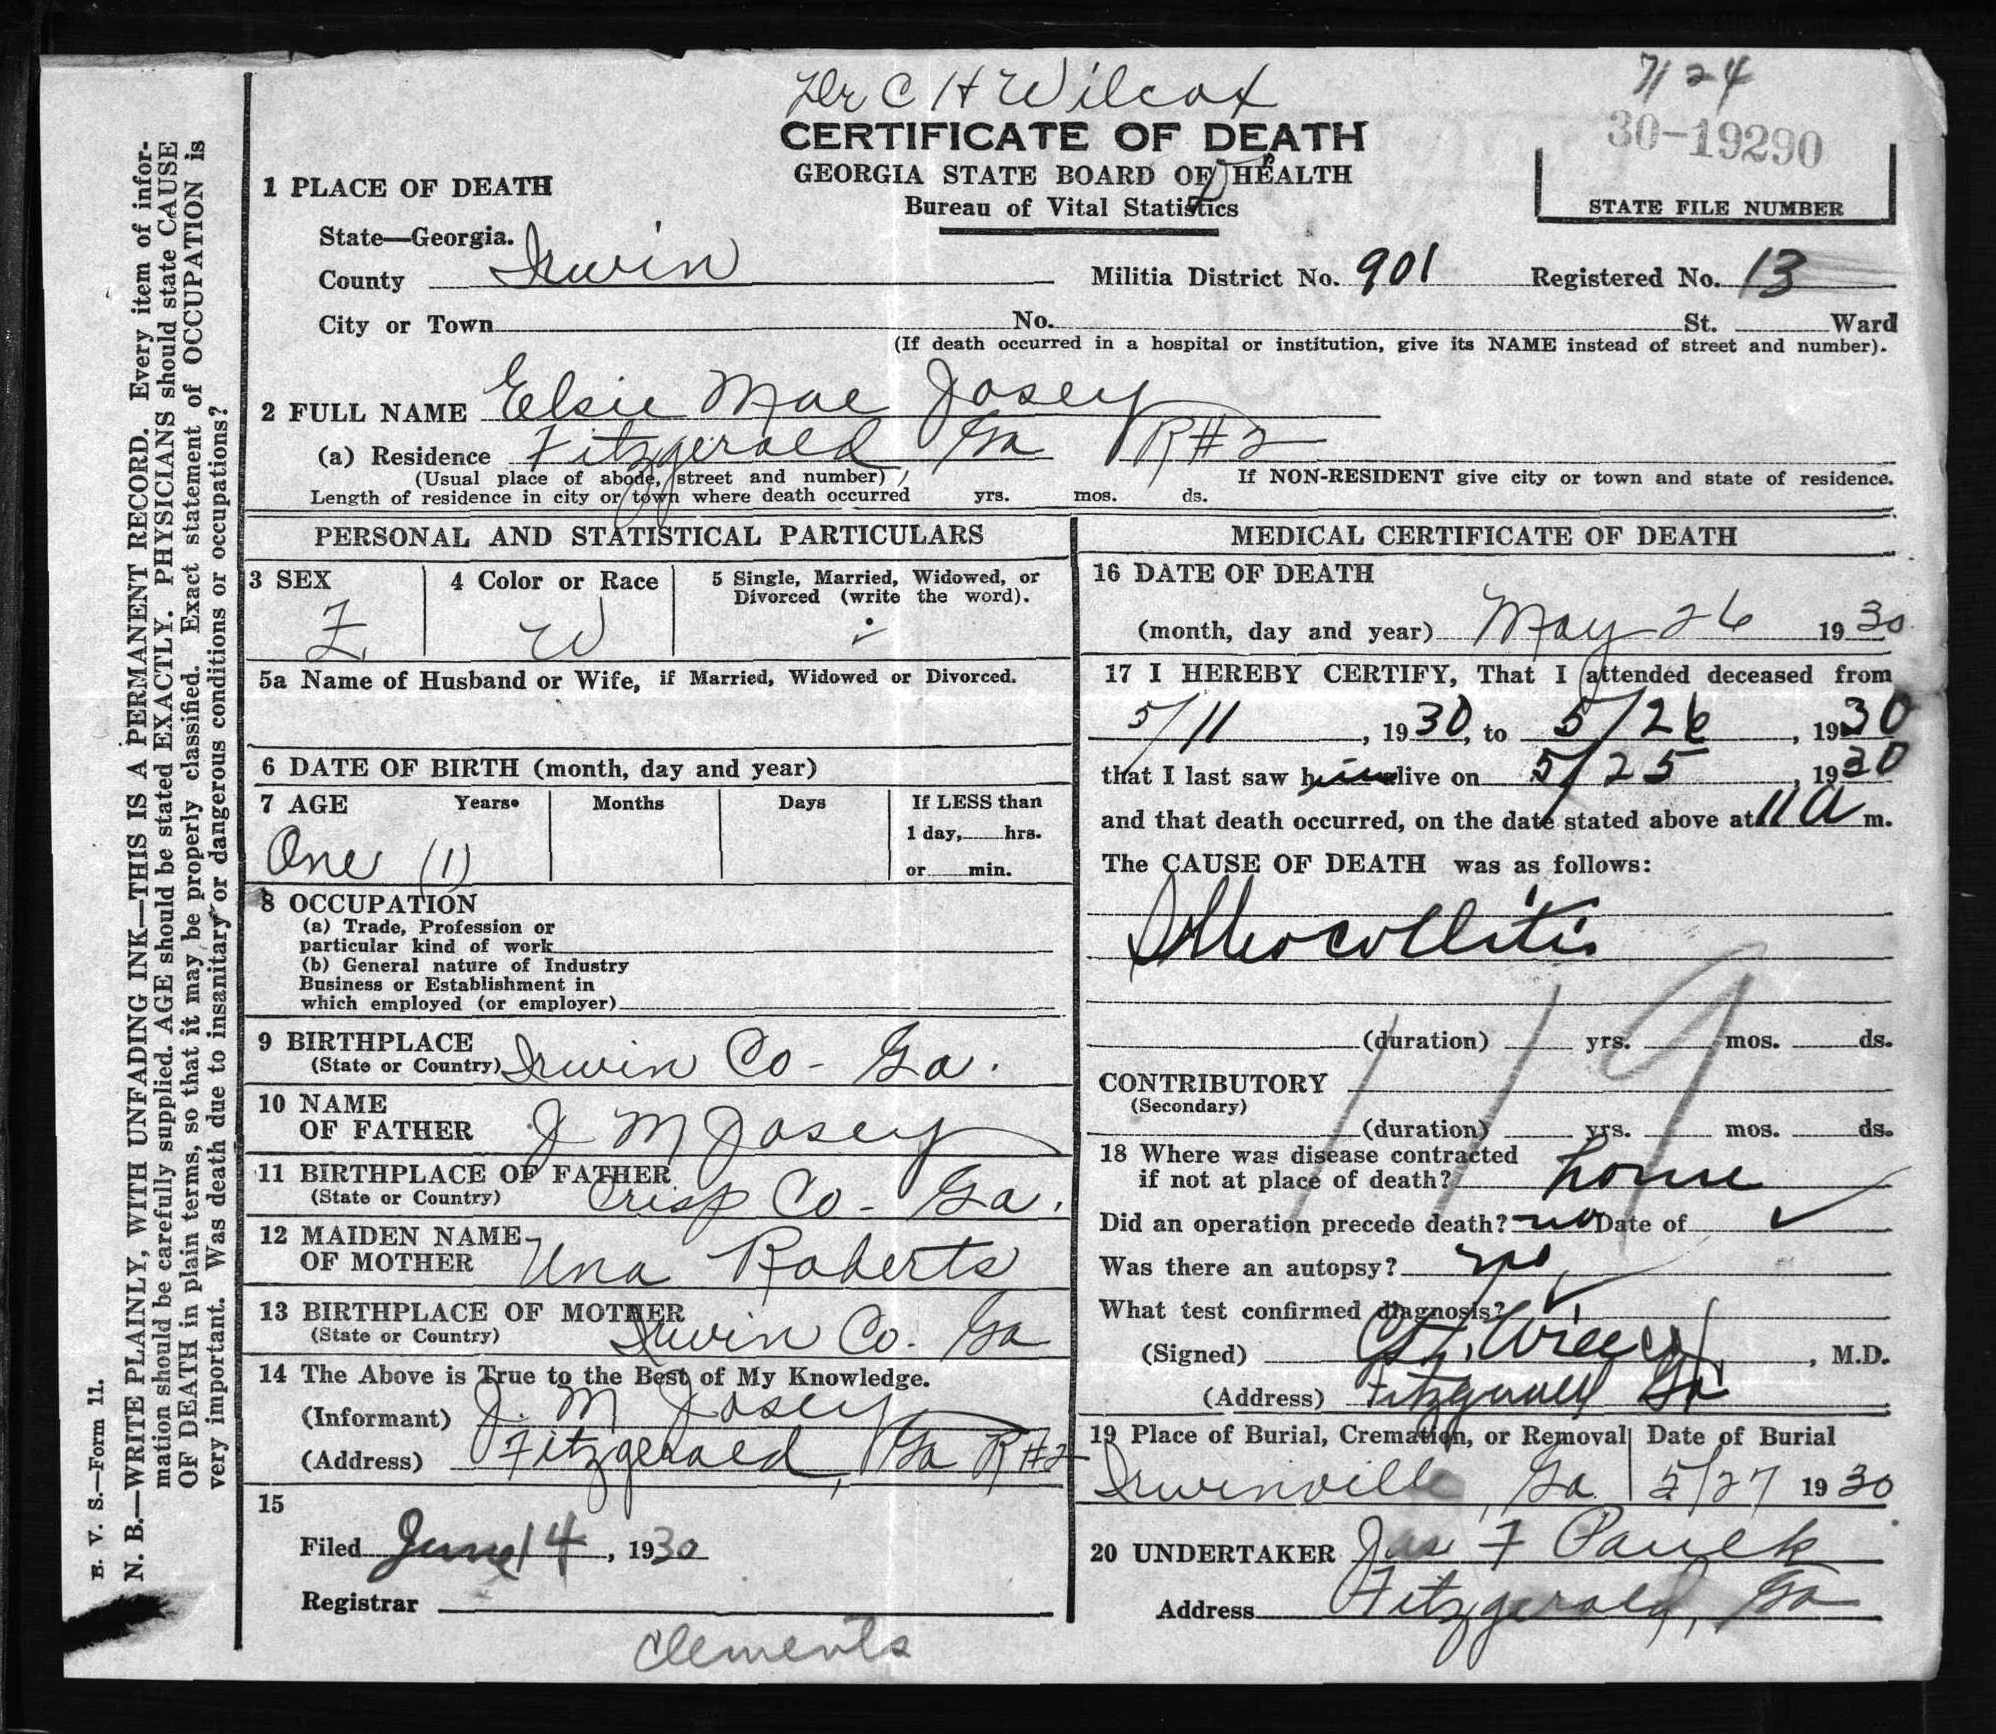 Dr C H Wilcox
7124
CERTIFICATE OF DEATH
30-19290
GEORGIA STATE BOARD OF HEALTH
Bureau of Vital Statistics
STATE FILE NUMBER
1 PLACE OF DEATH
State—Georgia.
County Irwin Militia District No. 901 Registered No. 13
City or Town No. St. Ward
(If death occurred in a hospital or institution, give its NAME instead of street and number).
2 FULL NAME Elsie Mae Josey
(a) Residence Fitzgerald, Ga R#2
(Usual place of abode, street and number) If NON-RESIDENT give city or town and state of residence.
Length of residence in city or town where death occurred yrs. mos. ds.
PERSONAL AND STATISTICAL PARTICULARS
3 SEX 4 Color or Race 5 Single, Married, Widowed, or
Divorced (write the word).
F W
5a Name of Husband or Wife, if Married, Widowed or Divorced.
6 DATE OF BIRTH (month, day and year)
7 AGE Years Months Days If LESS than
1 day, hrs.
One (1) or min.
8 OCCUPATION
(a) Trade, Profession or
particular kind of work
(b) General nature of Industry
Business or Establishment in
which employed (or employer)
9 BIRTHPLACE
(State or Country) Irwin Co - Ga.
10 NAME
OF FATHER J M Josey
11 BIRTHPLACE OF FATHER
(State or Country) Crisp Co - Ga.
12 MAIDEN NAME
OF MOTHER Una Roberts
13 BIRTHPLACE OF MOTHER
(State or Country) Irwin Co. Ga
14 The Above is True to the Best of My Knowledge.
(Informant) J. M Josey
(Address) Fitzgerald, Ga R#2
15
Filed June 14, 1930
Registrar
Clements
MEDICAL CERTIFICATE OF DEATH
16 DATE OF DEATH
(month, day and year) May 26 1930
17 I HEREBY CERTIFY, That I attended deceased from
5/11, 1930, to 5/26, 1930
that I last saw him alive on 5/25, 1930
and that death occurred, on the date stated above at 11 a m.
The CAUSE OF DEATH was as follows:
Illeocollitis
119
(duration) yrs. mos. ds.
CONTRIBUTORY
(Secondary)
(duration) yrs. mos. ds.
18 Where was disease contracted
if not at place of death? home
Did an operation precede death? no Date of
Was there an autopsy? no
What test confirmed diagnosis?
(Signed) C H. Wilcox, M.D.
(Address) Fitzgerald Ga
19 Place of Burial, Cremation, or Removal Date of Burial
Irwinville, Ga. 5/27 1930
20 UNDERTAKER Jas F Paulk
Address Fitzgerald, Ga
B. V. S.—Form 11.
N. B.—WRITE PLAINLY, WITH UNFADING INK—THIS IS A PERMANENT RECORD. Every item of infor-
mation should be carefully supplied. AGE should be stated EXACTLY. PHYSICIANS should state CAUSE
OF DEATH in plain terms, so that it may be properly classified. Exact statement of OCCUPATION is
very important. Was death due to insanitary or dangerous conditions or occupations?